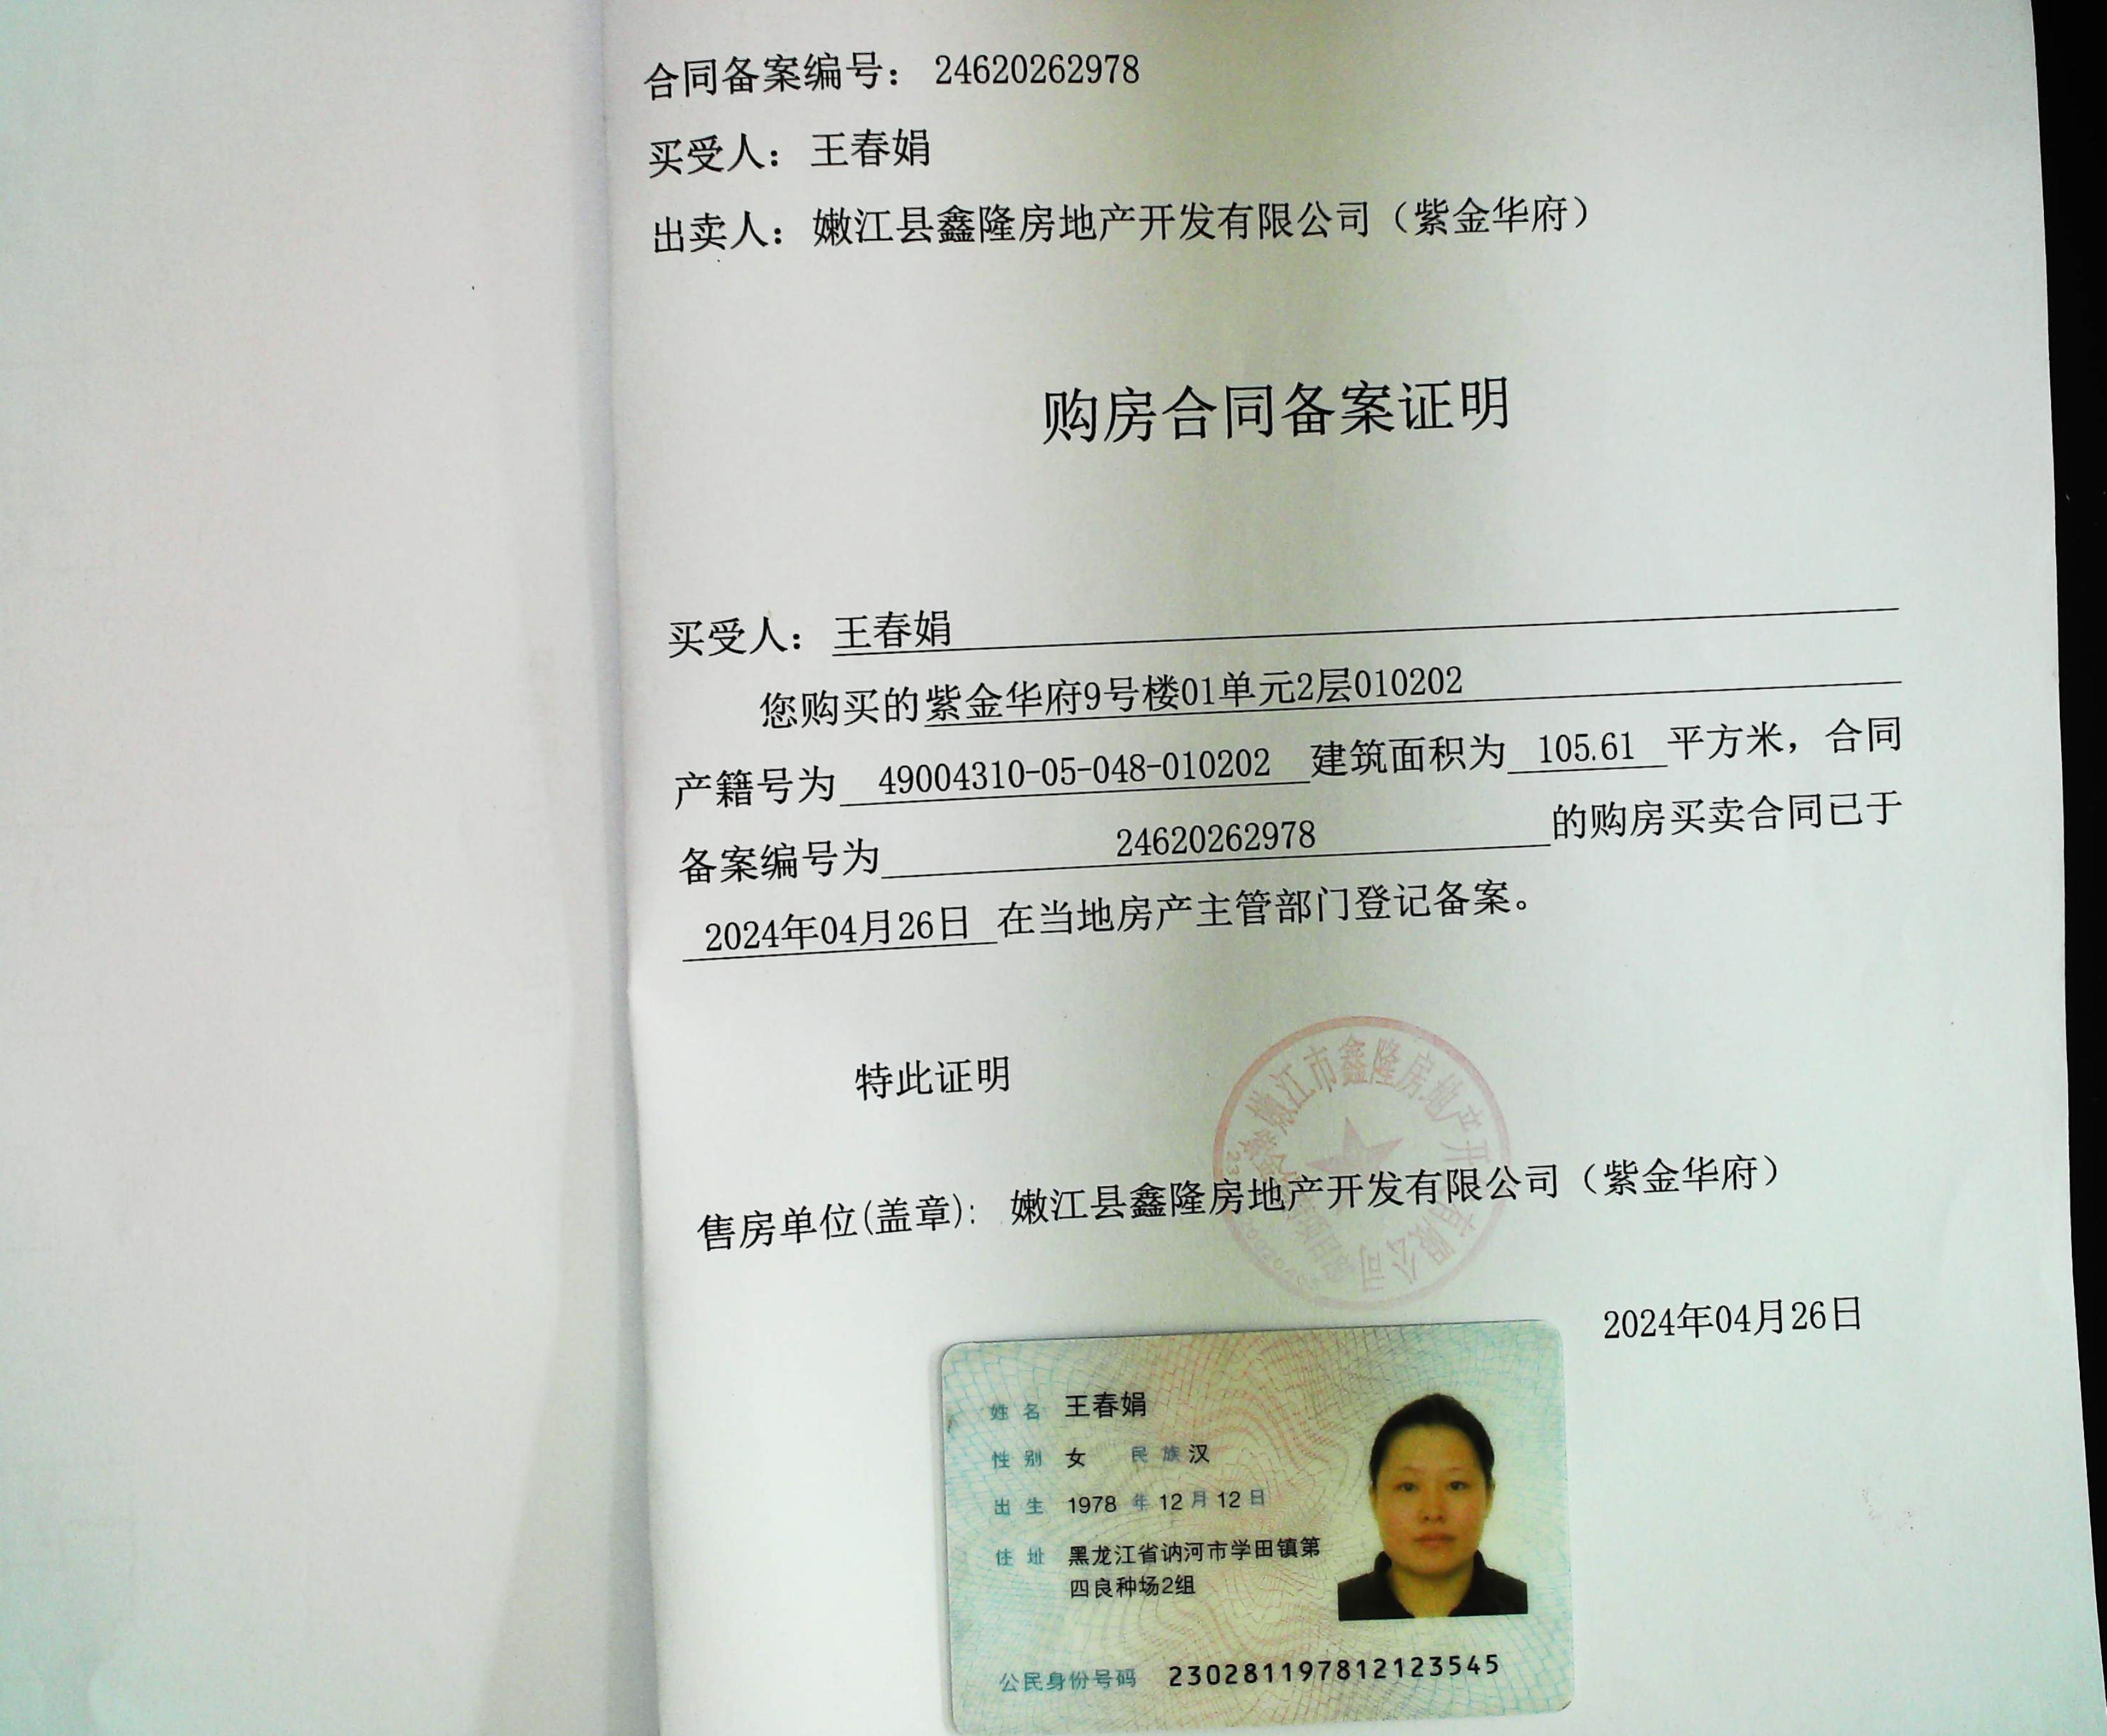 合同备案编号： 24620262978
买受人：王春娟
出卖人：嫩江县鑫隆房地产开发有限公司（紫金华府）
购房合同备案证明
买受人：王春娟
您购买的紫金华府9号楼01单元2层010202
产籍号为 49004310-05-048-010202 建筑面积为 105.61 平方米，合同
备案编号为 24620262978 的购房买卖合同已于
2024年04月26日 在当地房产主管部门登记备案。
特此证明
嫩江市鑫隆房地产开有限公司
售房单位(盖章)： 嫩江县鑫隆房地产开发有限公司（紫金华府）
2024年04月26日
姓名 王春娟
性别 女 民族 汉
出生 1978 年 12 月 12 日
住址 黑龙江省讷河市学田镇第
四良种场2组
公民身份号码 230281197812123545